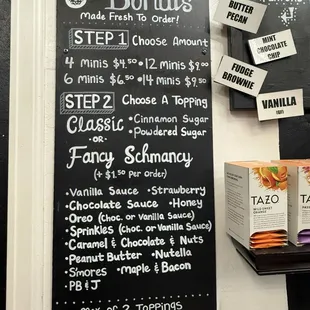 Donuts
made Fresh To Order!
STEP 1 Choose Amount
4 minis $4.50 • 12 minis $8.00
6 minis $6.50 • 14 minis $9.50
STEP 2 Choose A Topping
Classic • Cinnamon Sugar
• Powdered Sugar
-OR-
Fancy Schmancy
(+ $1.50 per order)
• Vanilla Sauce • Strawberry
• Chocolate Sauce • Honey
• Oreo (choc. or Vanilla Sauce)
• Sprinkles (choc. or Vanilla Sauce)
• Caramel & Chocolate & Nuts
• Peanut Butter • Nutella
• S'mores • Maple & Bacon
• PB & J
2 Toppings
BUTTER
PECAN
MINT
CHOCOLATE
CHIP
FUDGE
BROWNIE
VANILLA
TAZO
TAZO